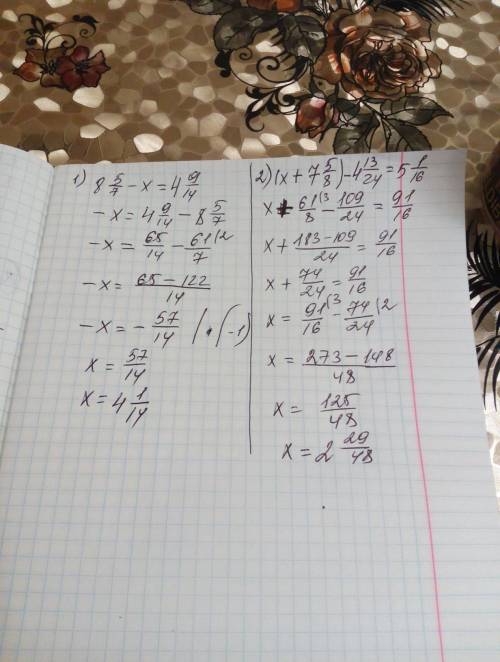 1) 8 5/7 - x = 4 9/14
-x = 4 9/14 - 8 5/7
-x = 65/14 - 61/7 (2
-x = 65-122/14
-x = - 57/14 | · (-1)
x = 57/14
x = 4 1/14
2) (x + 7 5/8) - 4 13/24 = 5 1/16
x + 61/8 (3 - 109/24 = 91/16
x + 183-109/24 = 91/16
x + 74/24 = 91/16
x = 91/16 (3 - 74/24 (2
x = 273-148/48
x = 125/48
x = 2 29/48